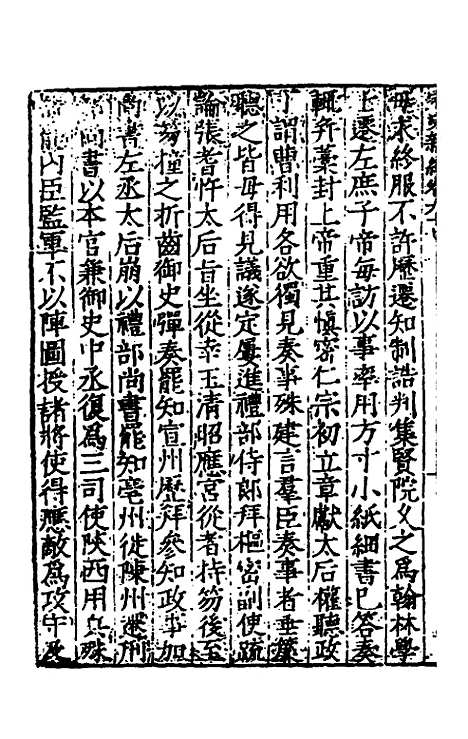 毋求終服不許歷遷知制誥判集賢院久之為翰林學
士遷左庶子帝每訪以事率用方寸小紙細書已答奏
輒并藁封上帝重其愼密仁宗初立章獻太后權聽政
丁謂曹利用各欲獨見奏事殊建言羣臣奏事者垂簾
聽之皆毋得見議遂定屢進禮部侍郎拜樞密副使疏
論張耆忤太后旨坐從幸玉清昭應宮從者持笏後至
以笏撞之折齒御史彈奏罷知宣州歷拜參知政事加
尚書左丞太后崩以禮部尚書罷知亳州徙陳州遷刑
部尚書以本官兼御史中丞復為三司使陝西用兵殊
請罷內臣監軍不以陣圖授諸將使得應敵為攻守及